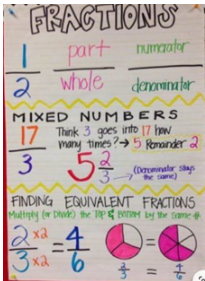 FRACTIONS
1 part numerator
2 whole denominator
MIXED NUMBERS
17 Think 3 goes into 17 how
many times? → 5 Remainder 2
3 5 2/3 → (Denominator stays
the same)
FINDING EQUIVALENT FRACTIONS
Multiply (or Divide) the TOP & BOTTOM by the same #
2 x2 = 4
3 x2 6
=
2/3 = 4/6